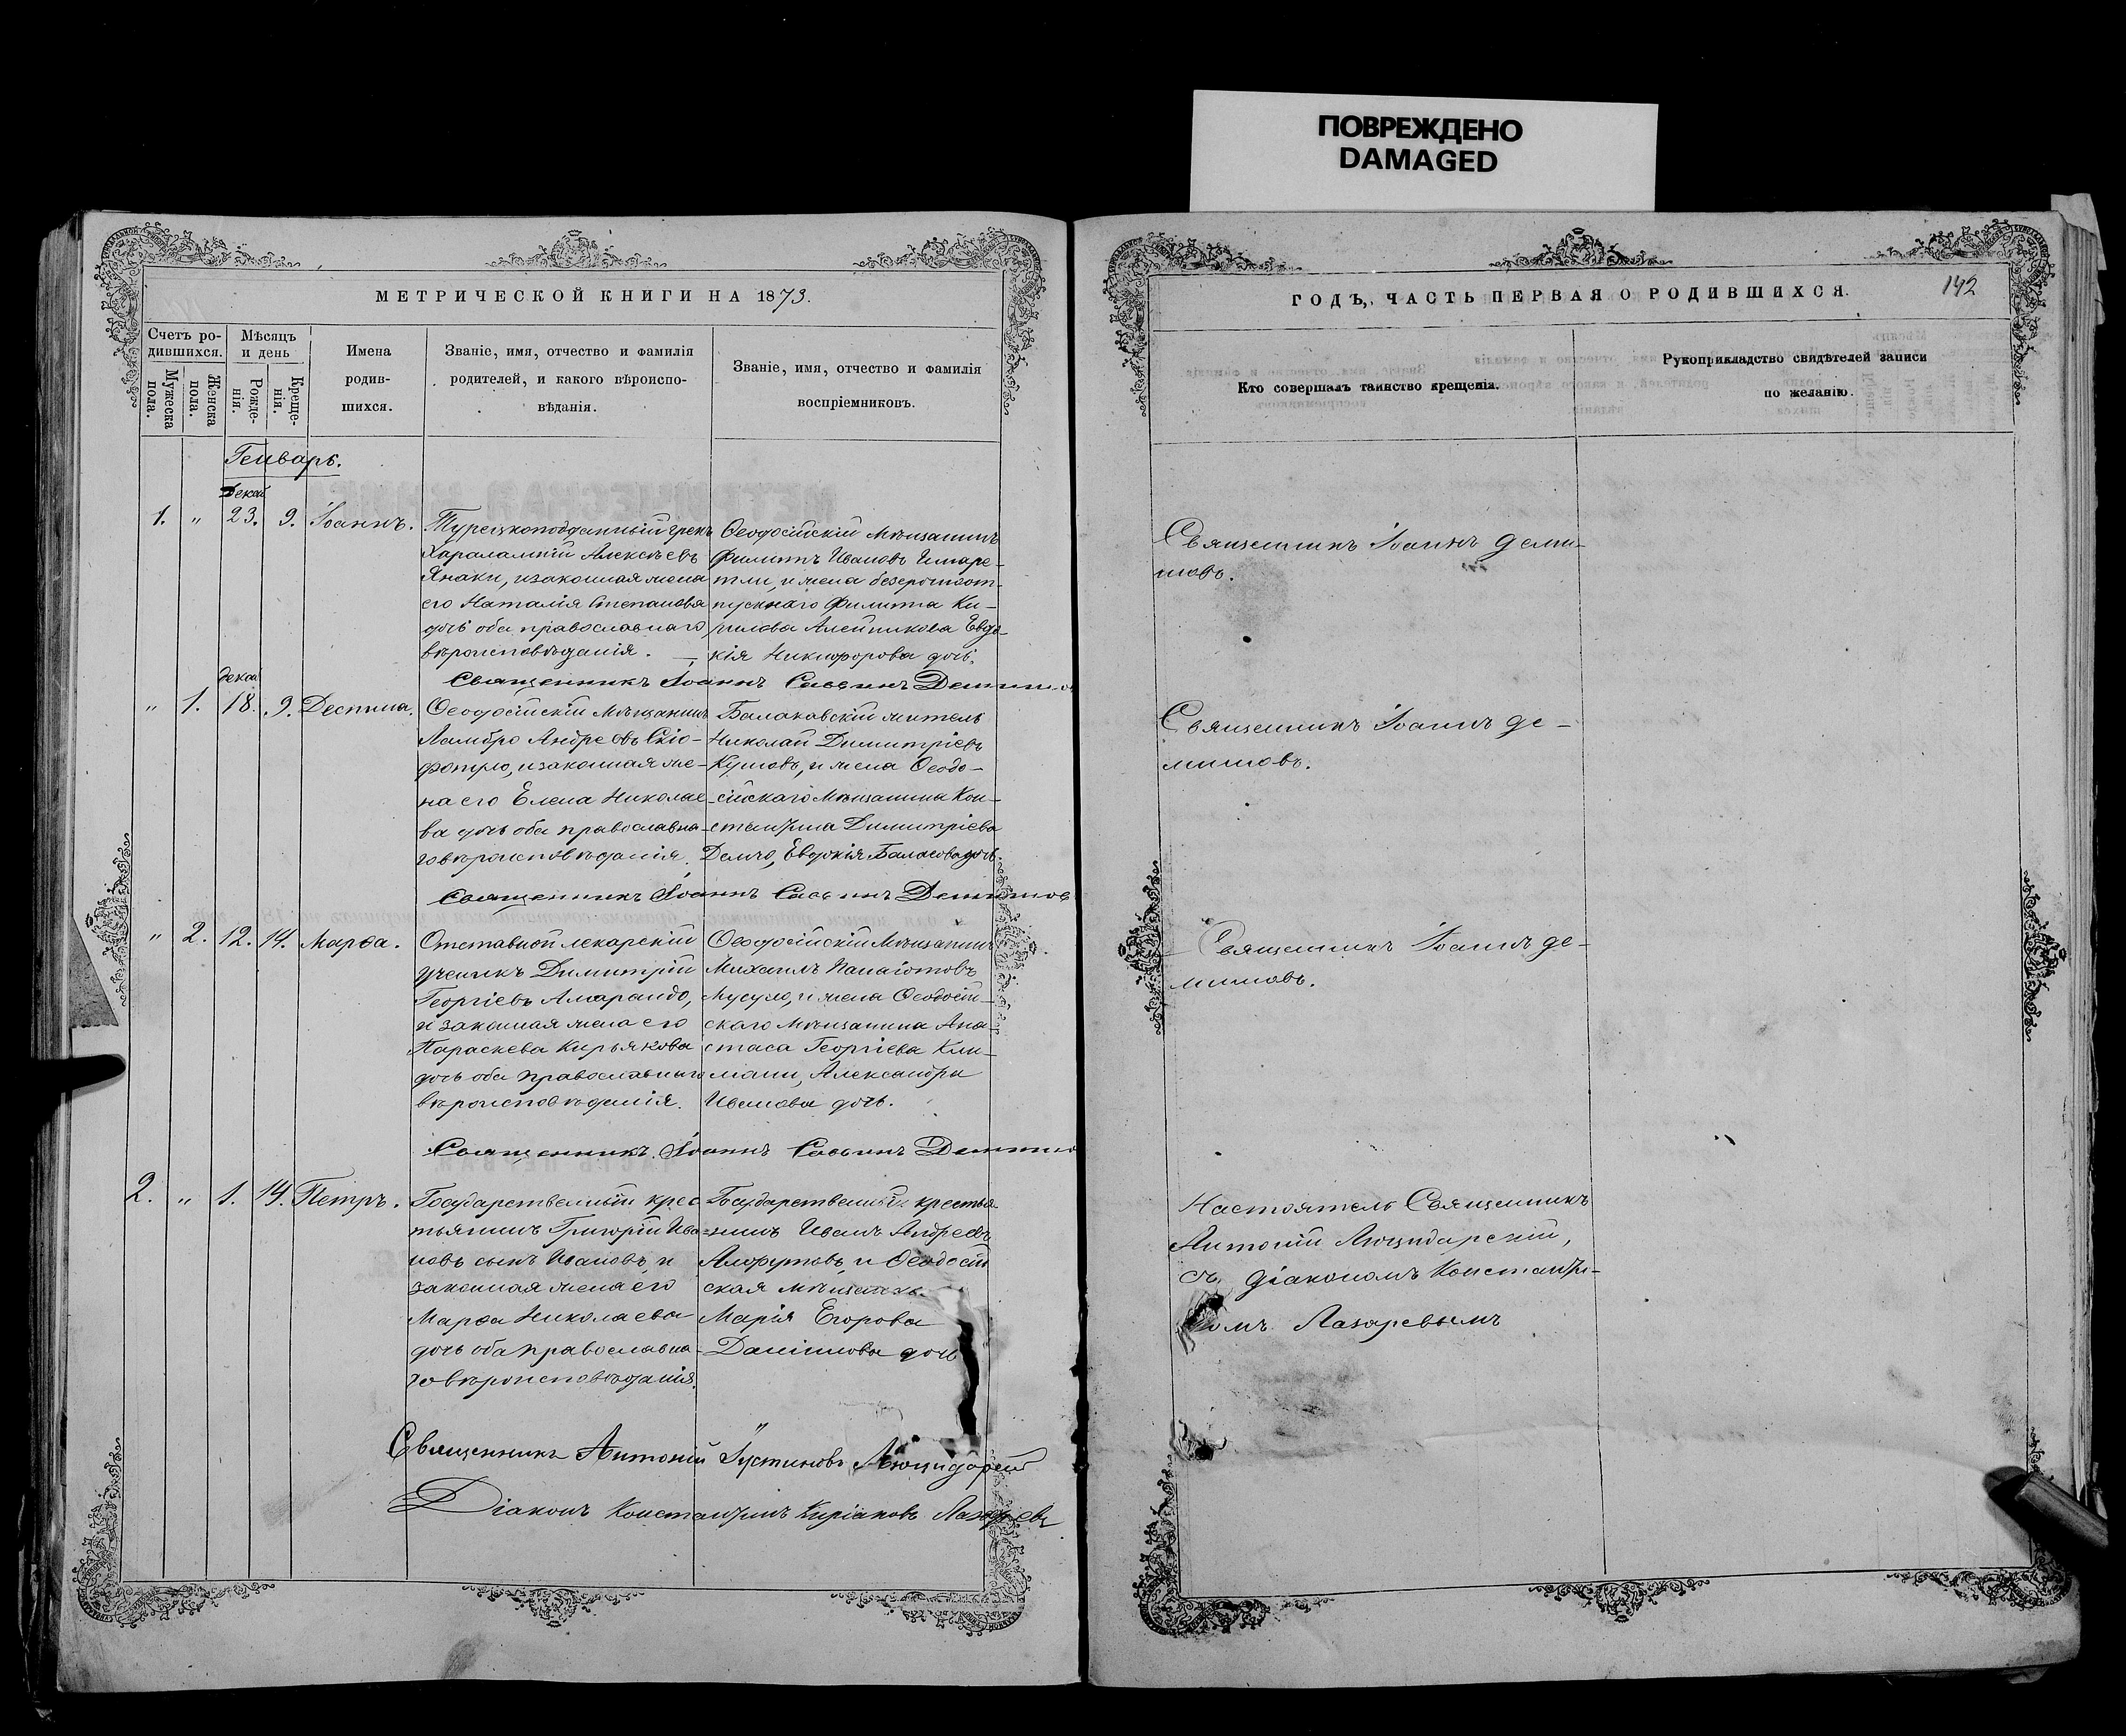 ПОВРЕЖДЕНО
DAMAGED
МЕТРИЧЕСКОЙ КНИГИ НА 1873.
Счетъ ро-
дившихся.
Мужеска
пола.
Женска
пола.
Мѣсяцъ
и день
Рожде-
нія.
Креще-
нія.
Имена
родив-
шихся.
Званіе, имя, отчество и фамилія
родителей, и какого вѣроиспо-
вѣданія.
Званіе, имя, отчество и фамилія
воспріемниковъ.
Генварь.
Декаб
1. " 23. 9. Іоаннъ.
Турецкоподданный грекъ
Харалампій Алексѣевъ
Янаки, и законная жена
его Наталія Степанова
дочь оба православнаго
вѣроисповѣданія.
Ѳеодосійскій Мѣщанинъ
Филиппъ Ивановъ
и жена безсрочноот-
пускнаго Филиппа Ки-
рилова Алейникова Евдо-
кія Никифорова дочь.
Священникъ Іоаннъ Савинъ
декаб
" 1. 18. 9. Деспина.
Ѳеодосійскій Мѣщанинъ
Ламбро Андреевъ Скіо-
и законная же-
на его Елена Николае-
ва дочь оба православна-
го вѣроисповѣданія.
Балаклавскій житель
Николай Димитріевъ
и жена Ѳеодо-
сійскаго Мѣщанина Кон-
стантина Димитріева
Евдокія дочь.
Священникъ Іоаннъ Савинъ
" 2. 12. 14. Марѳа.
Отставной лекарскій
ученикъ Димитрій
Георгіевъ Амарандо,
и законная жена его
Параскева Кирьякова
дочь оба православнаго
вѣроисповѣданія.
Ѳеодосійскій Мѣщанинъ
Михаилъ Панаіотовъ
и жена Ѳеодосій-
скаго Мѣщанина Ана-
стаса Георгіева Кли-
мани, Александра
Иванова дочь.
Священникъ Іоаннъ Савинъ
2. " 1. 14. Петръ.
Государственный крес
тьянинъ Григорій Ива-
новъ сынъ Ивановъ, и
законная жена его
Марѳа Николаева
дочь оба православна-
го вѣроисповѣданія.
Государственный крестья
=нинъ Иванъ Андреевъ
и Ѳеодосій
ская
Марія Егорова
Данилова дочь
Священникъ Антоній Іустиновъ
Діаконъ Константинъ Киріаковъ Лазаревъ
ГОДЪ, ЧАСТЬ ПЕРВАЯ О РОДИВШИХСЯ.
142
Кто совершалъ таинство крещенія.
Рукоприкладство свидѣтелей записи
по желанію.
Священникъ Іоаннъ Деми-
новъ.
Священникъ Іоаннъ Де-
миновъ.
Священникъ Іоаннъ Де-
миновъ.
Настоятель Священникъ
Антоній
съ Діакономъ Константи-
номъ Лазаревымъ